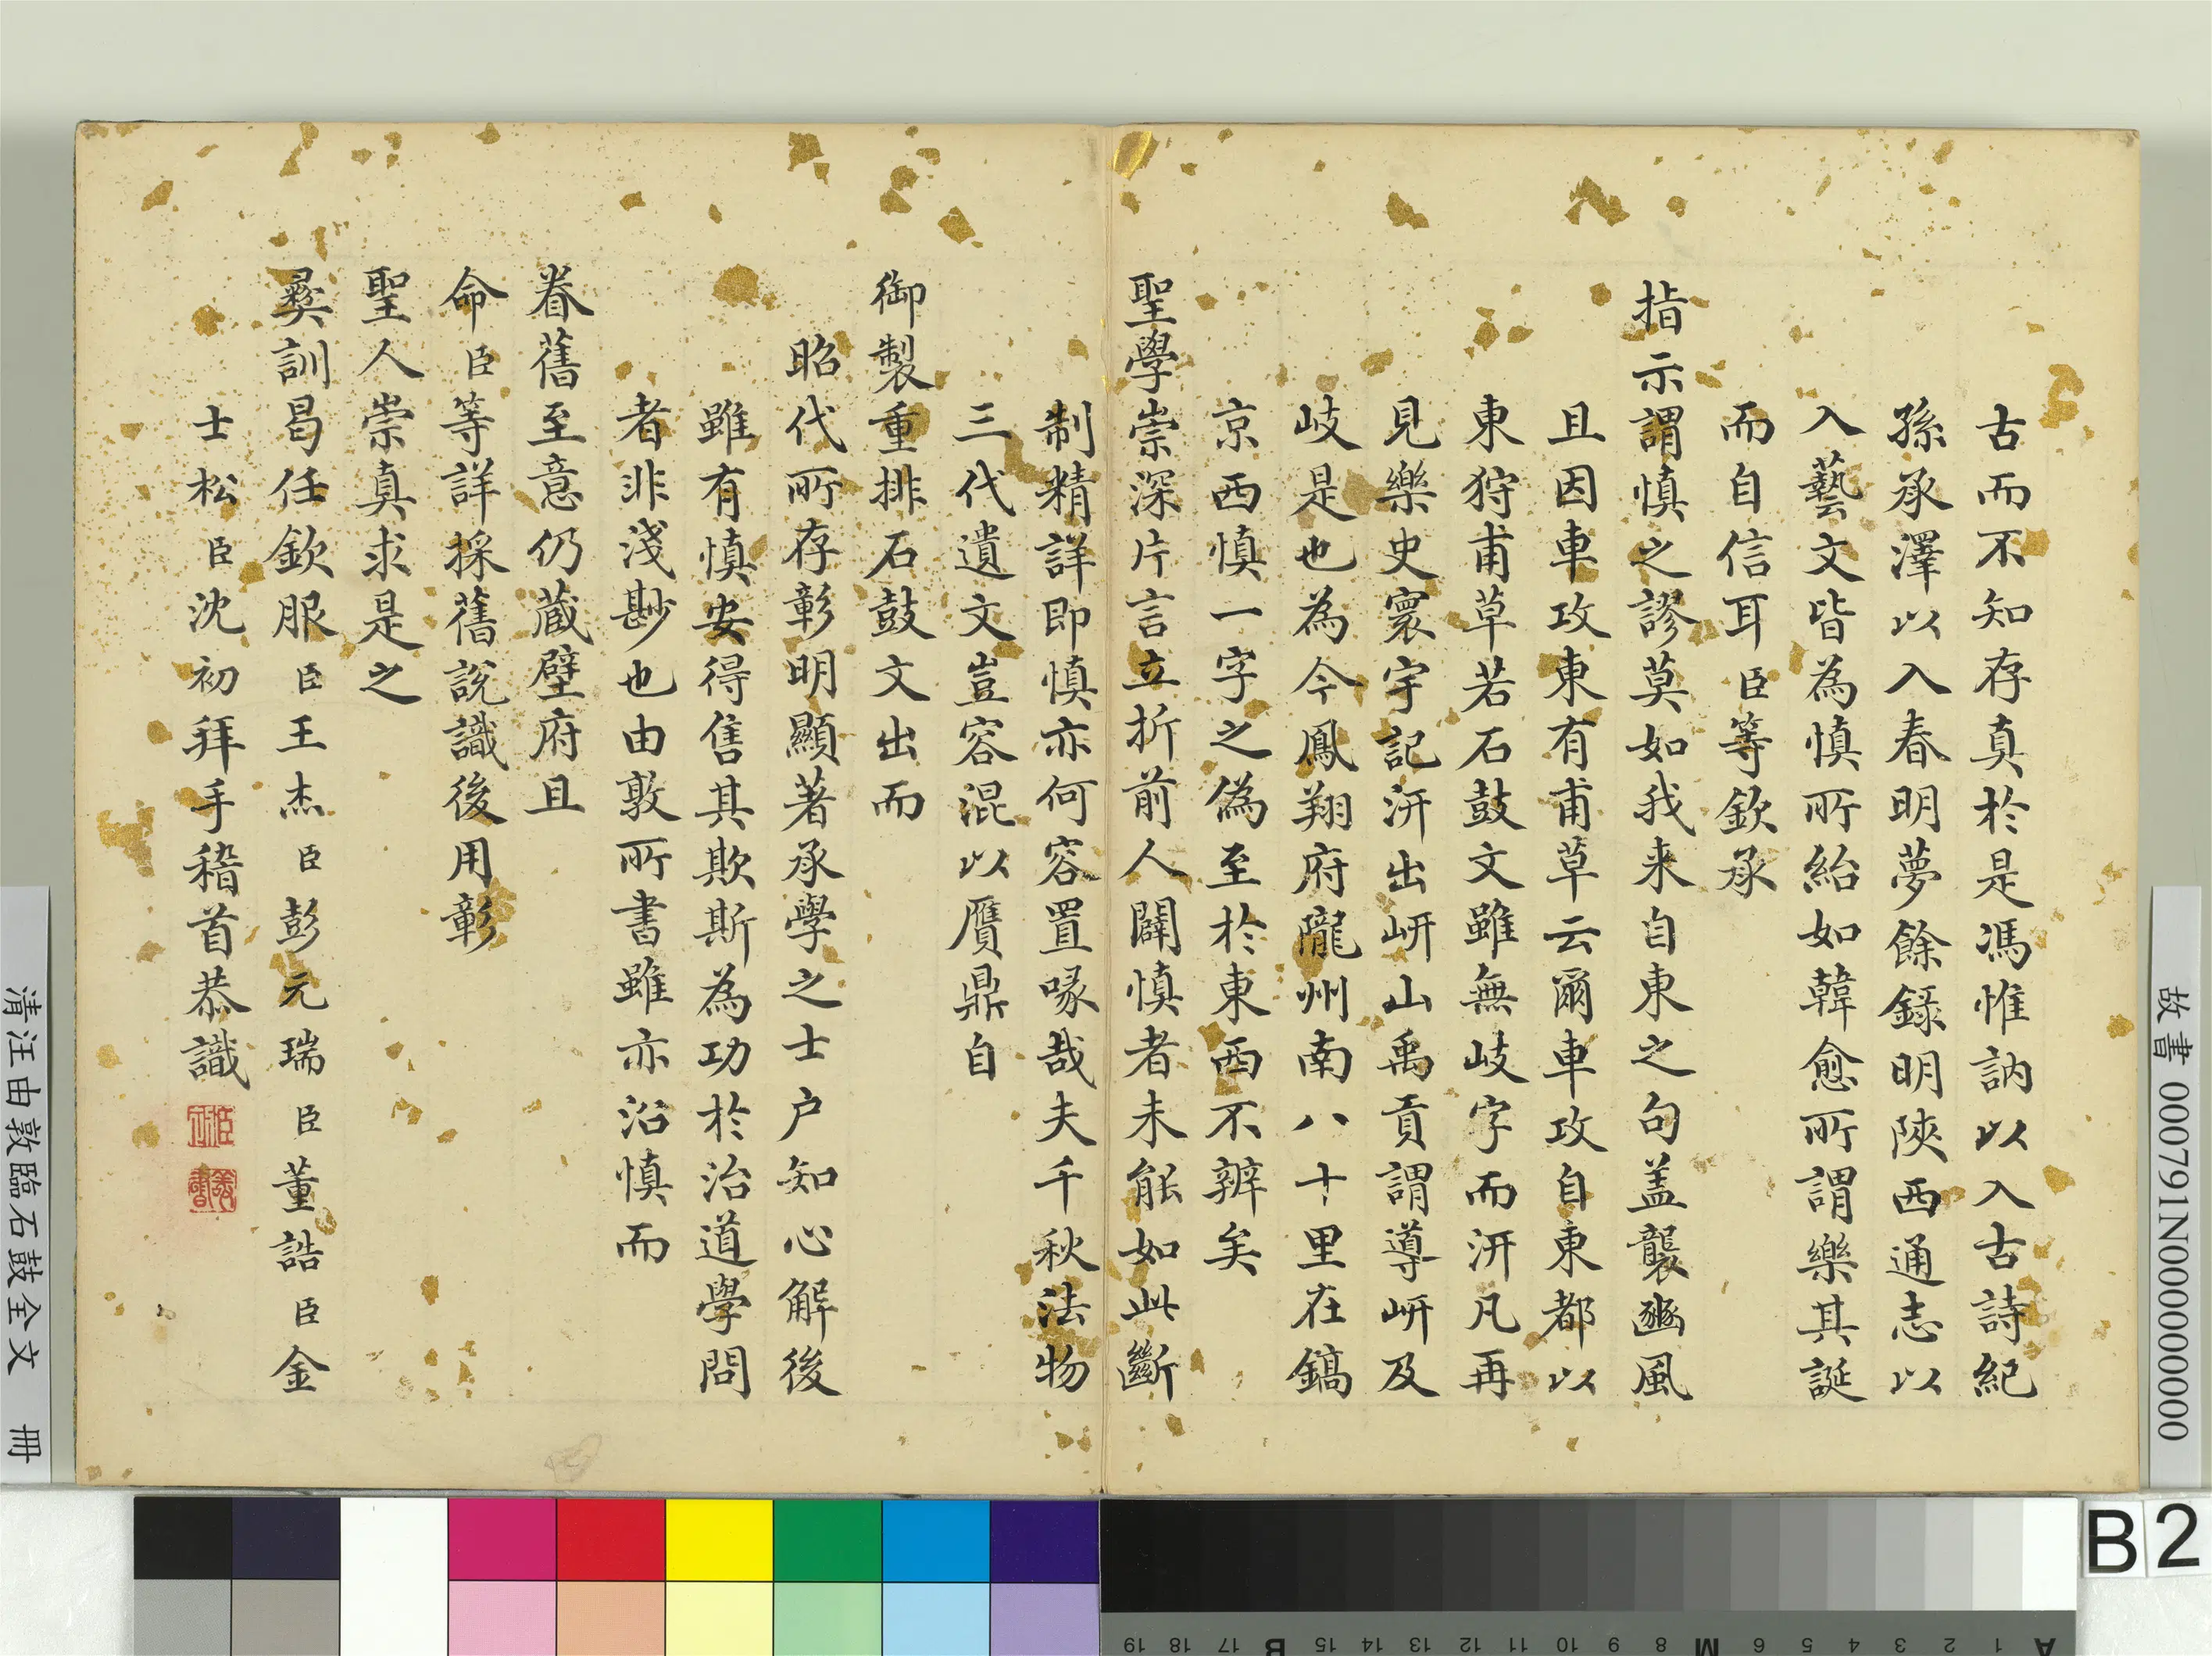 古而不知存真於是馮惟訥以入古詩紀
孫承澤以入春明夢餘錄明陝西通志以
入藝文皆為慎所紿如韓愈所謂樂其誕
而自信耳臣等欽承
指示謂慎之謬莫如我来自東之句盖襲豳風
且因車攻東有甫草云爾車攻自東都以
東狩甫草若石鼓文雖無岐字而汧凡再
見樂史寰宇記汧出岍山禹貢謂導岍及
岐是也為今鳳翔府隴州南八十里在鎬
京西慎一字之偽至於東西不辨矣
聖學崇深片言立折前人闢慎者未能如此斷
制精詳即慎亦何容置喙哉夫千秋法物
三代遺文豈容混以贋鼎自
御製重排石鼓文出而
昭代所存彰明顯著承學之士户知心解後
雖有慎安得售其欺斯為功於治道學問
者非淺尠也由敦所書雖亦沿慎而
眷舊至意仍蔵壁府且
命臣等詳採舊說識後用彰
聖人崇真求是之
彛訓曷任欽服臣王杰臣彭元瑞臣董誥臣金
士松臣沈初拜手稽首恭識
清汪由敦臨石鼓全文 冊
故書 000791N000000000
B2
A 1 2 3 4 5 6 M 8 9 10 11 12 13 14 15 16 17 B 18 19